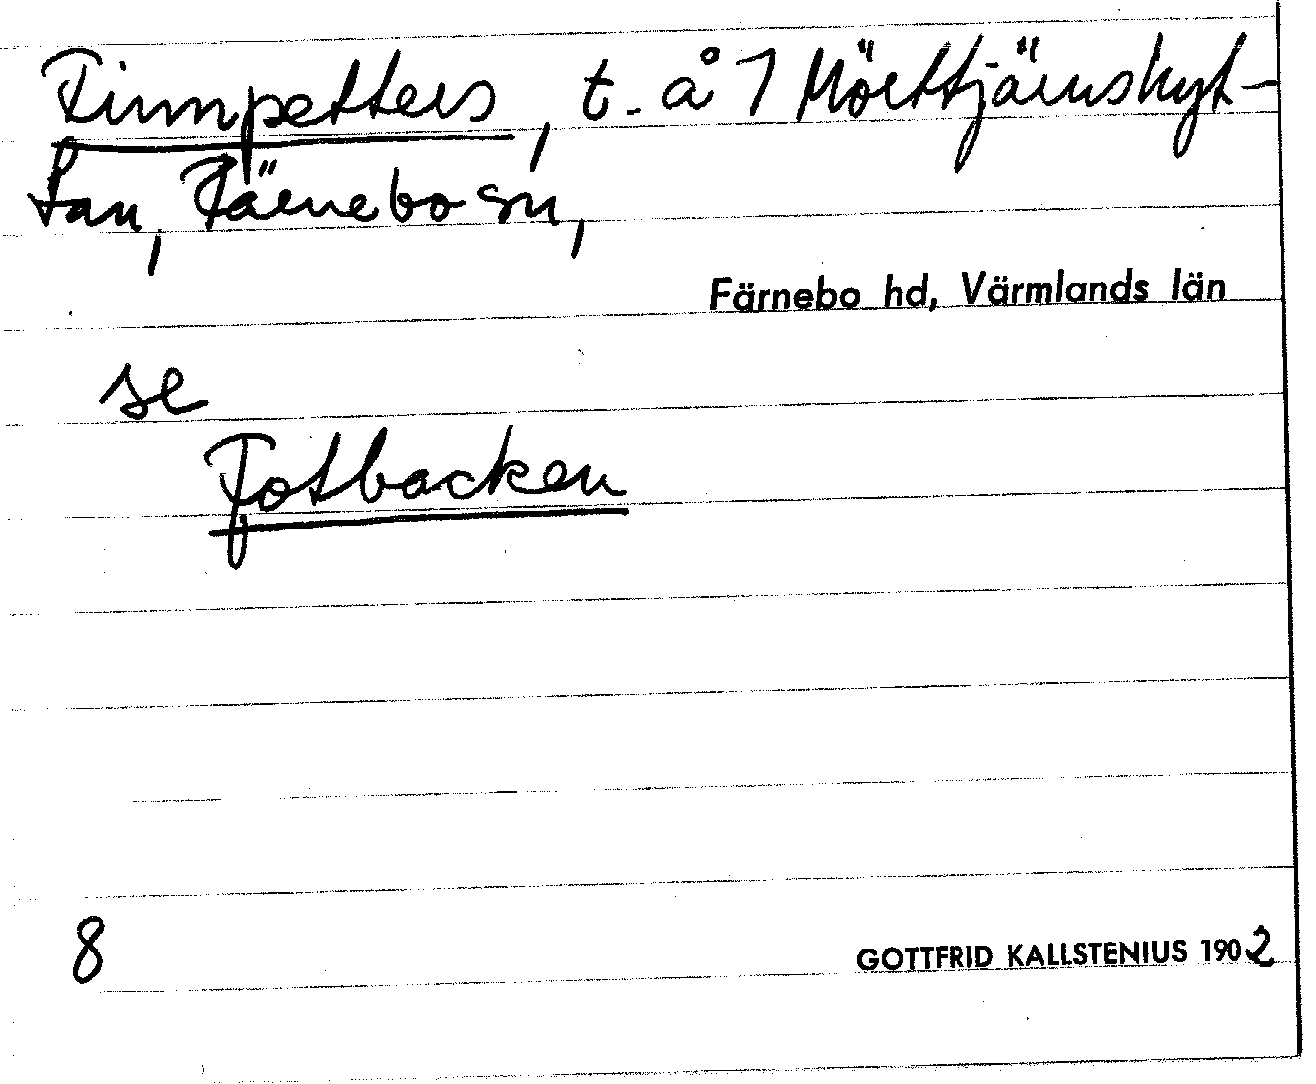 Finnpetters, t. å 1 Mörttjärnshyt-
tan, Färnebo sn,
Färnebo hd, Värmlands län
se
Fotbacken
8
GOTTFRID KALLSTENIUS 1902